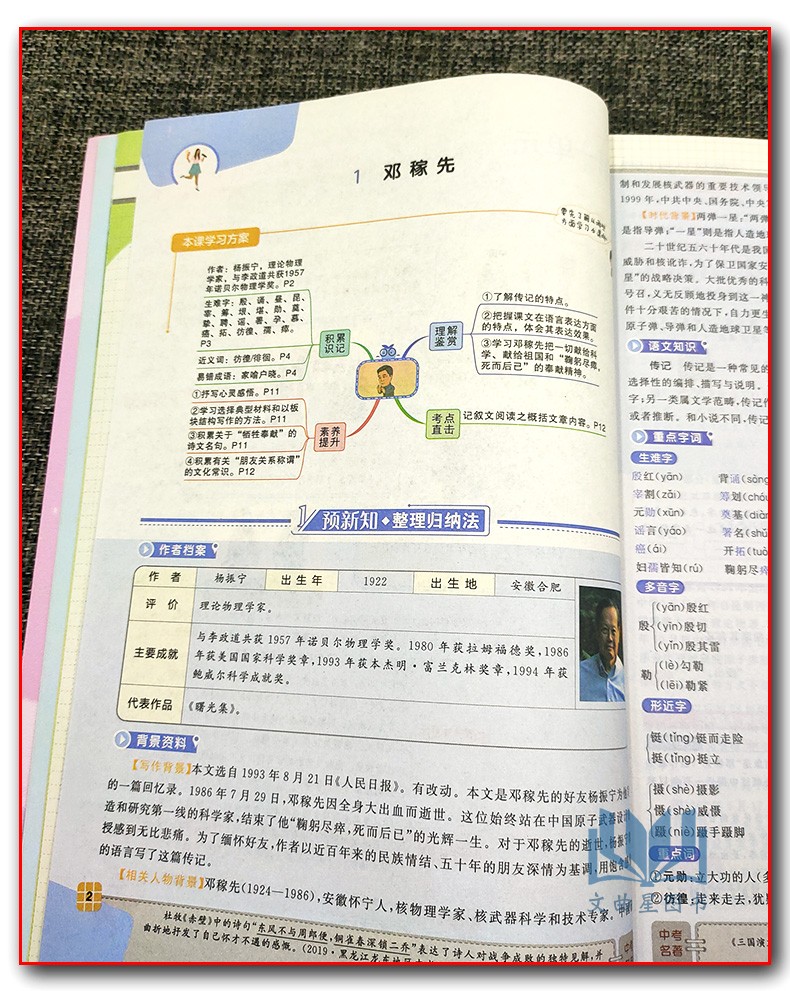 1 邓稼先
本课学习方案
作者：杨振宁，理论物理
学家，与李政道共获1957
年诺贝尔物理学奖。P2
生难字：殷、诵、昼、昆、
宰、筹、埋、堪、勋、奠、
挚、聘、谣、署、孕、慕、
癌、拓、彷徨、孺、瘁。
P3
近义词：彷徨/徘徊。P4
易错成语：家喻户晓。P4
积累
识记
①抒写心灵感悟。P11
②学习选择典型材料和以板
块结构写作的方法。P11
③积累关于“牺牲奉献”的
诗文名句。P11
④积累有关“朋友关系称谓”
的文化常识。P12
素养
提升
理解
鉴赏
①了解传记的特点。
②把握课文在语言表达方面
的特点，体会其表达效果。
③学习邓稼先把一切献给科
学、献给祖国和“鞠躬尽瘁，
死而后已”的奉献精神。
考点
直击
记叙文阅读之概括文章内容。P12
1 预新知·整理归纳法
作者档案
作 者 杨振宁 出生年 1922 出生地 安徽合肥
评 价 理论物理学家。
主要成就 与李政道共获 1957 年诺贝尔物理学奖。1980 年获拉姆福德奖，1986
年获美国国家科学奖章，1993 年获本杰明·富兰克林奖章，1994 年获
鲍威尔科学成就奖。
代表作品 《曙光集》。
背景资料
【写作背景】本文选自 1993 年 8 月 21 日《人民日报》。有改动。本文是邓稼先的好友杨振宁为他
的一篇回忆录。1986 年 7 月 29 日，邓稼先因全身大出血而逝世。这位始终站在中国原子武器设计
造和研究第一线的科学家，结束了他“鞠躬尽瘁，死而后已”的光辉一生。对于邓稼先的逝世，杨振宁
授感到无比悲痛。为了缅怀好友，作者以近百年来的民族情结、五十年的朋友深情为基调，用饱含
的语言写了这篇传记。
【相关人物背景】邓稼先（1924—1986），安徽怀宁人，核物理学家、核武器科学和技术专家，中国
2
杜牧《赤壁》中的诗句“东风不与周郎便，铜雀春深锁二乔”表达了诗人对战争成败的独特见解，并
曲折地抒发了自己怀才不遇的感慨。（2019·黑龙江龙东地区
制和发展核武器的重要技术领导
1999 年，中共中央、国务院、中央
【时代背景】两弹一星：“两弹
是指导弹；“一星”则是指人造地
二十世纪五六十年代是我国
威胁和核讹诈，为了保卫国家安
星”的战略决策。大批优秀的科
号召，义无反顾地投身到这一神
件十分艰苦的情况下，自力更生
原子弹、导弹和人造地球卫星等
语文知识
传记 传记是一种常见的
选择性的编排、描写与说明。
字；另一类属文学范畴，传记作
或者推断。和小说不同，传记
重点字词
生难字
殷红（yān） 背诵（sòng
宰割（zǎi） 筹划（chóu
元勋（xūn） 奠基（diàn
谣言（yáo） 署名（shǔ
癌（ái） 开拓（tuò
妇孺皆知（rú） 鞠躬尽瘁
多音字
殷 （yān）殷红
（yīn）殷切
（yǐn）殷其雷
勒 （lè）勾勒
（lēi）勒紧
形近字
铤（tǐng）铤而走险
挺（tǐng）挺立
摄（shè）摄影
慑（shè）威慑
蹑（niè）蹑手蹑脚
重点词
①元勋：立大功的人（多
②彷徨：走来走去，犹
中考
名著
《三国演
文曲星图书